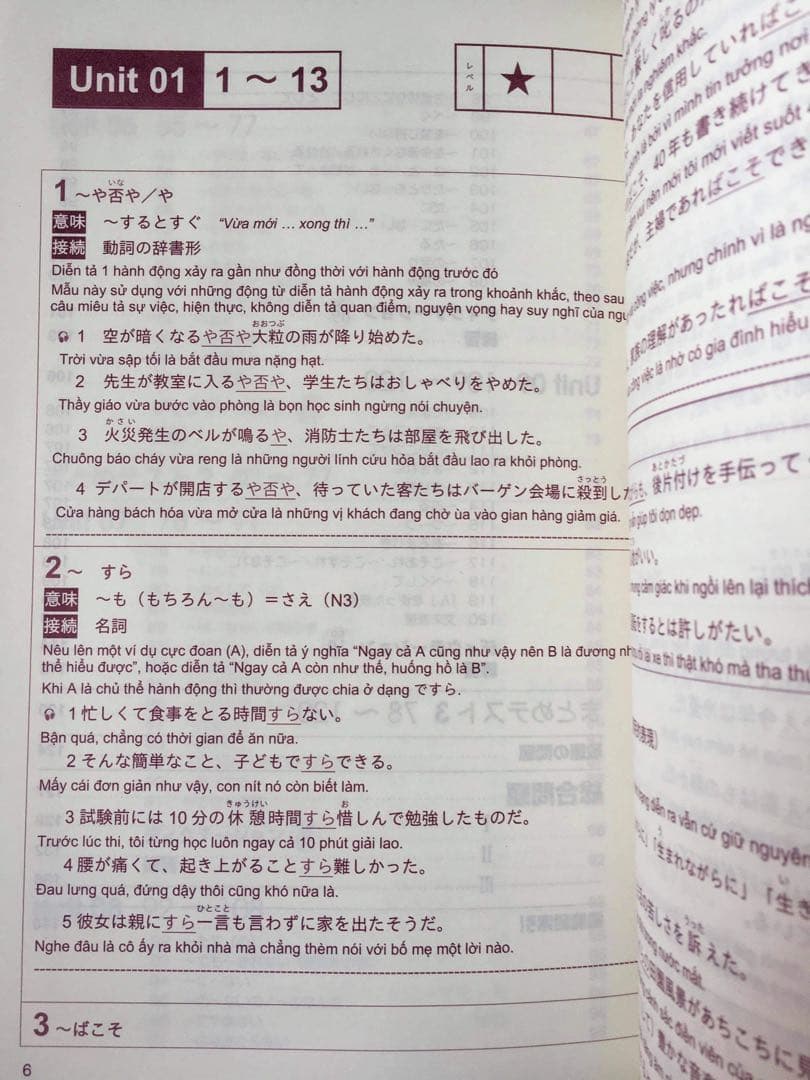 Unit 01 1 ～ 13
レベル ★
1 ～や否や／や
いな
意味 ～するとすぐ “Vừa mới … xong thì …”
接続 動詞の辞書形
Diễn tả 1 hành động xảy ra gần như đồng thời với hành động trước đó
Mẫu này sử dụng với những động từ diễn tả hành động xảy ra trong khoảnh khắc, theo sau
câu miêu tả sự việc, hiện thực, không diễn tả quan điểm, nguyện vọng hay suy nghĩ của
おおつぶ
1 空が暗くなるや否や大粒の雨が降り始めた。
Trời vừa sập tối là bắt đầu mưa nặng hạt.
2 先生が教室に入るや否や、学生たちはおしゃべりをやめた。
Thầy giáo vừa bước vào phòng là bọn học sinh ngừng nói chuyện.
かさい
3 火災発生のベルが鳴るや、消防士たちは部屋を飛び出した。
Chuông báo cháy vừa reng là những người lính cứu hỏa bắt đầu lao ra khỏi phòng.
さっとう
4 デパートが開店するや否や、待っていた客たちはバーゲン会場に殺到し
Cửa hàng bách hóa vừa mở cửa là những vị khách đang chờ ùa vào gian hàng giảm giá.
2～ すら
意味 ～も（もちろん～も）＝さえ（N3）
接続 名詞
Nêu lên một ví dụ cực đoan (A), diễn tả ý nghĩa “Ngay cả A cũng như vậy nên B là đương
thể hiểu được”, hoặc diễn tả “Ngay cả A còn như thế, huống hồ là B”.
Khi A là chủ thể hành động thì thường được chia ở dạng ですら.
1 忙しくて食事をとる時間すらない。
Bận quá, chẳng có thời gian để ăn nữa.
2 そんな簡単なこと、子どもですらできる。
Mấy cái đơn giản như vậy, con nít nó còn biết làm.
きゅうけい お
3 試験前には 10 分の休憩時間すら惜しんで勉強したものだ。
Trước lúc thi, tôi từng học luôn ngay cả 10 phút giải lao.
4 腰が痛くて、起き上がることすら難しかった。
Đau lưng quá, đứng dậy thôi cũng khó nữa là.
ひとこと
5 彼女は親にすら一言も言わずに家を出たそうだ。
Nghe đâu là cô ấy ra khỏi nhà mà chẳng thèm nói với bố mẹ một lời nào.
3 ～ばこそ
6
を信用していればこそ
là bởi vì mình tin tưởng nơi
こそ、40年も書き続けてき
nên mới tôi mới viết suốt
主婦であればこそでき
công việc, nhưng chính vì là
理解があったればこそ
công việc là nhờ có gia đình hiểu
あとかたづ
後片付けを手伝って
giúp tôi dọn dẹp.
がいい。
cảm giác khi ngồi lên lại thích
をするとは許しがたい。
xa thì thật khó mà tha thứ
diễn ra vẫn cứ giữ nguyên
「生まれながらに」「生き
うった
苦しさを訴えた。
nước mắt.
風景があちこちに見